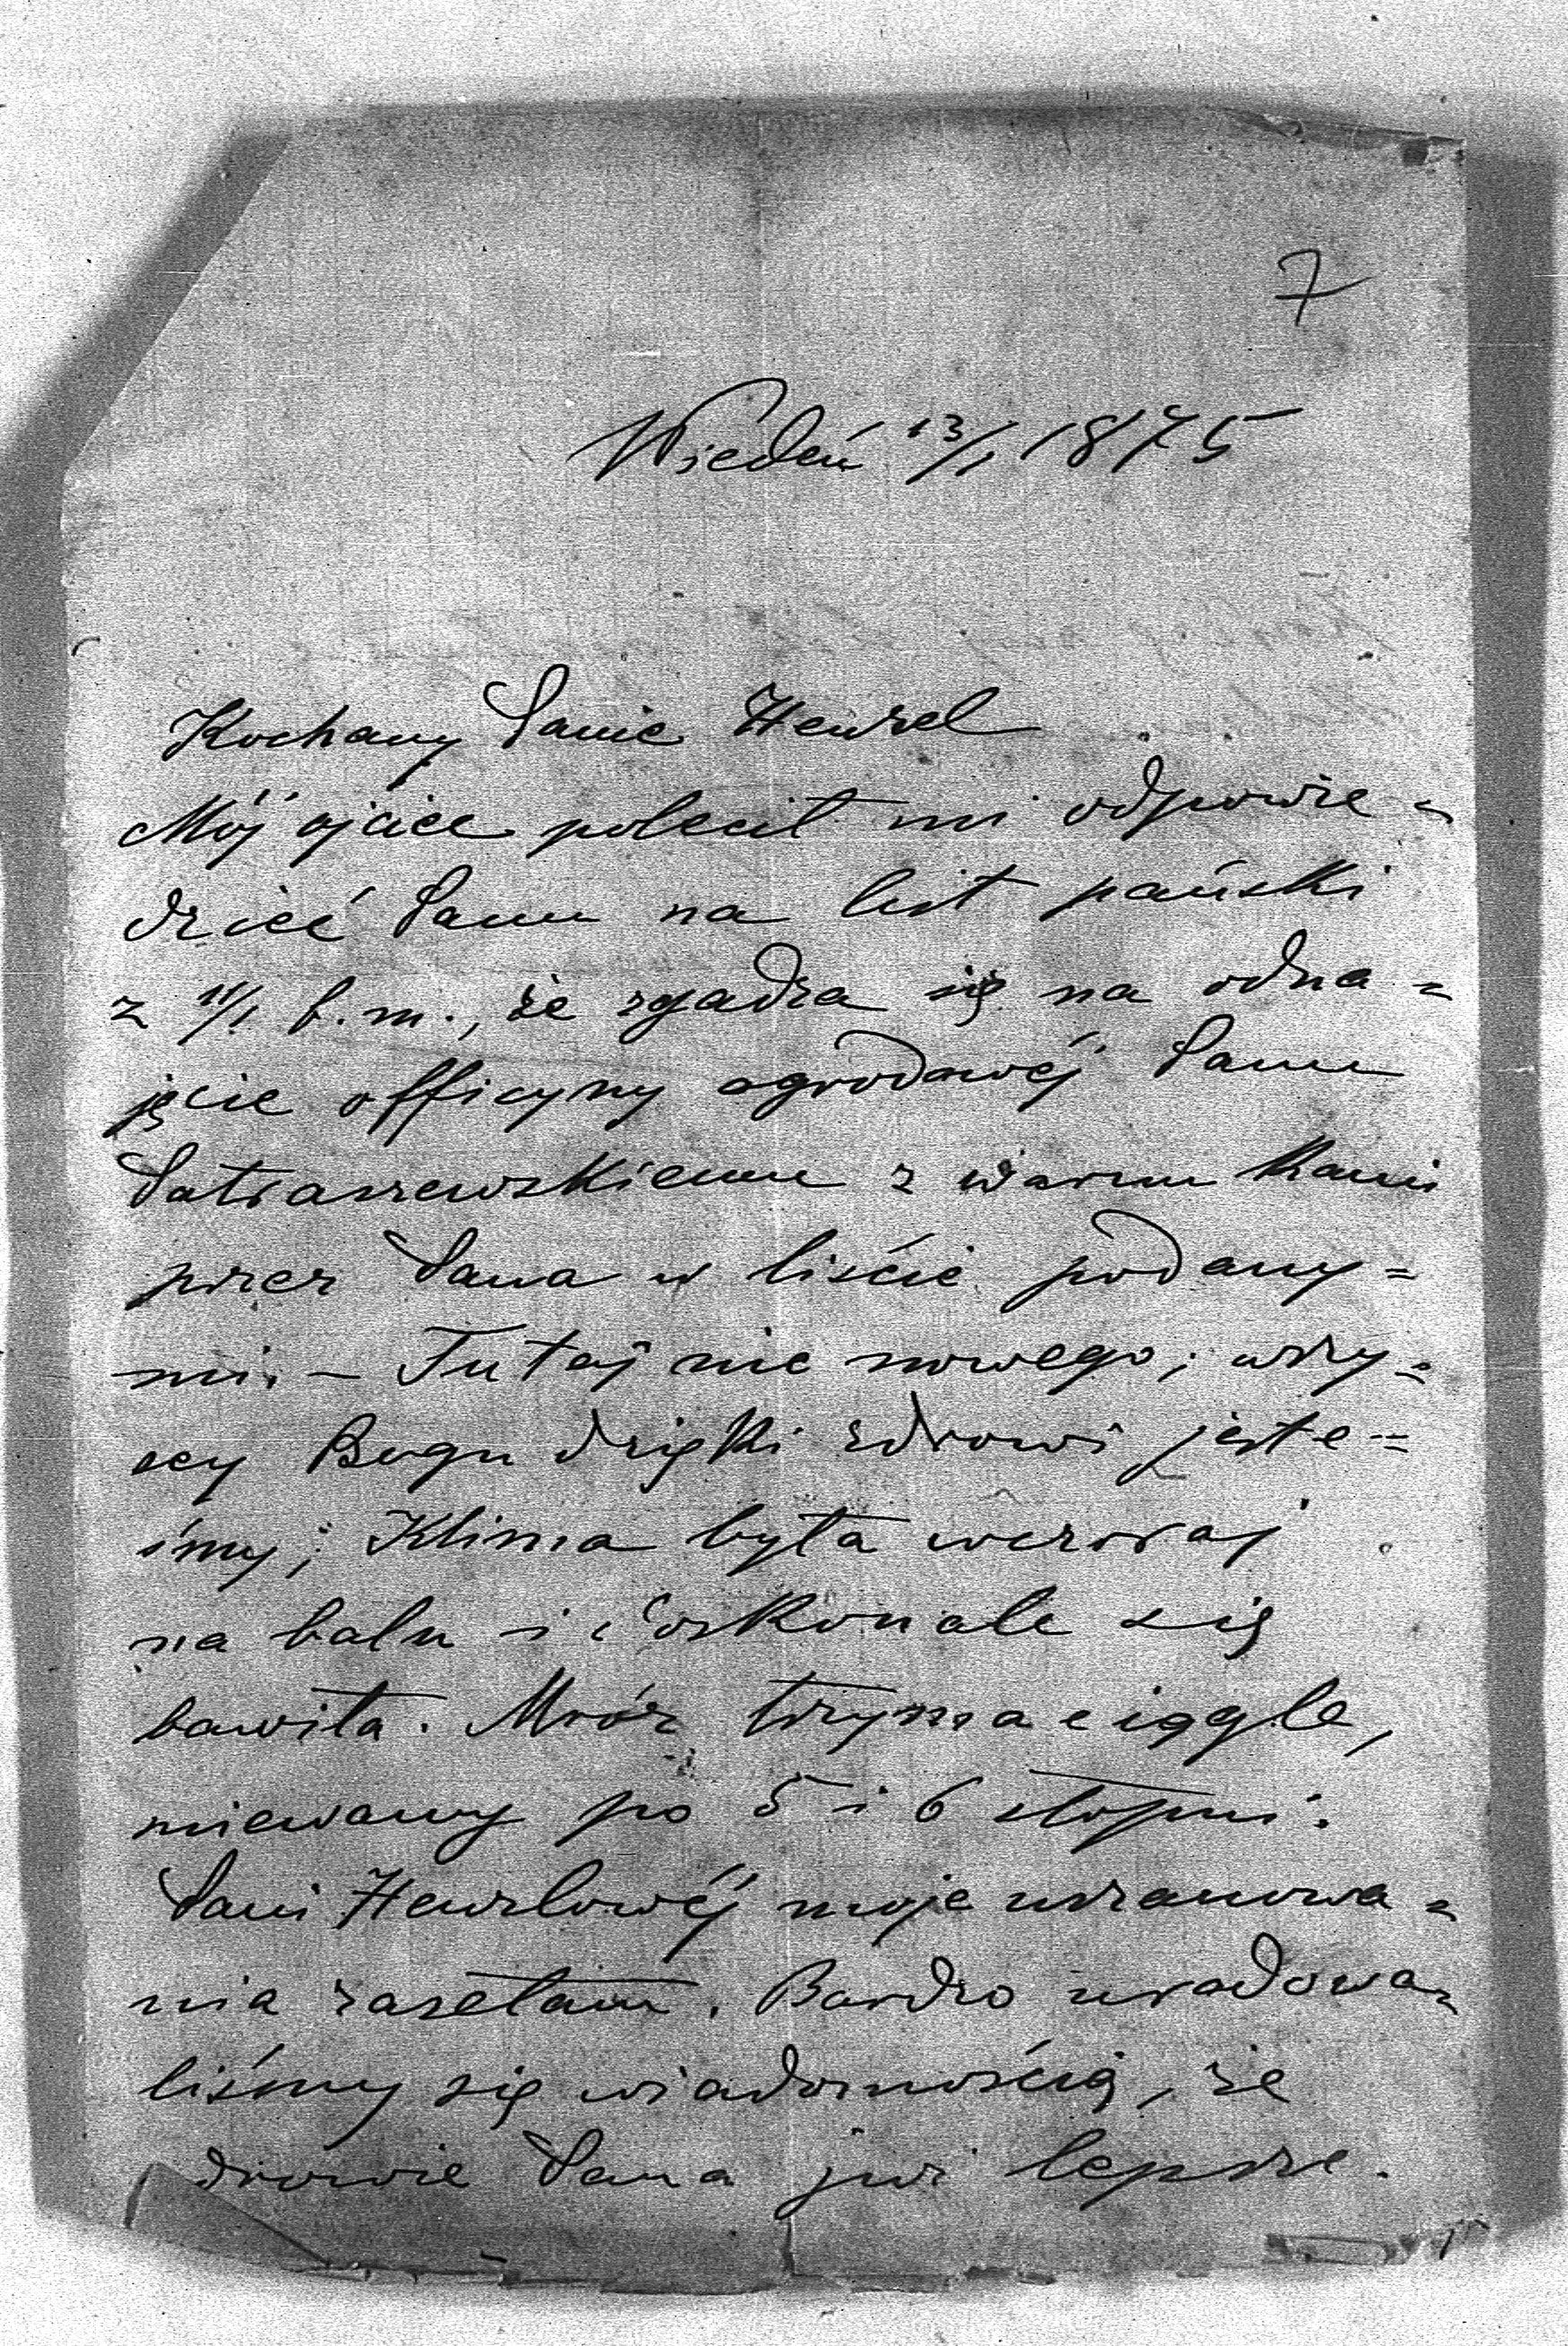 7
Wiedeń 13/1 1875
Kochany Panie Henzel
Mój ojciec polecił mi odpowie=
dzieć Panu na list pański
z 11/1 b.m., że zgadza się na odna=
jęcie officyny ogrodowéj Panu
Patraszewskiemu z warunkami
przez Pana w liście podany=
mi. – Tutaj nic nowego; wszy=
scy Bogu dzięki zdrowi jeste=
śmy; Klima była wczoraj
na balu i doskonale się
bawiła. Mróz trzyma ciągle,
miewamy po 5 i 6 stopni.
Pani Henzlowéj moje uszanowa=
nia zasełam. Bardzo uradowa=
liśmy się wiadomością, że
zdrowie Pana już lepsze.